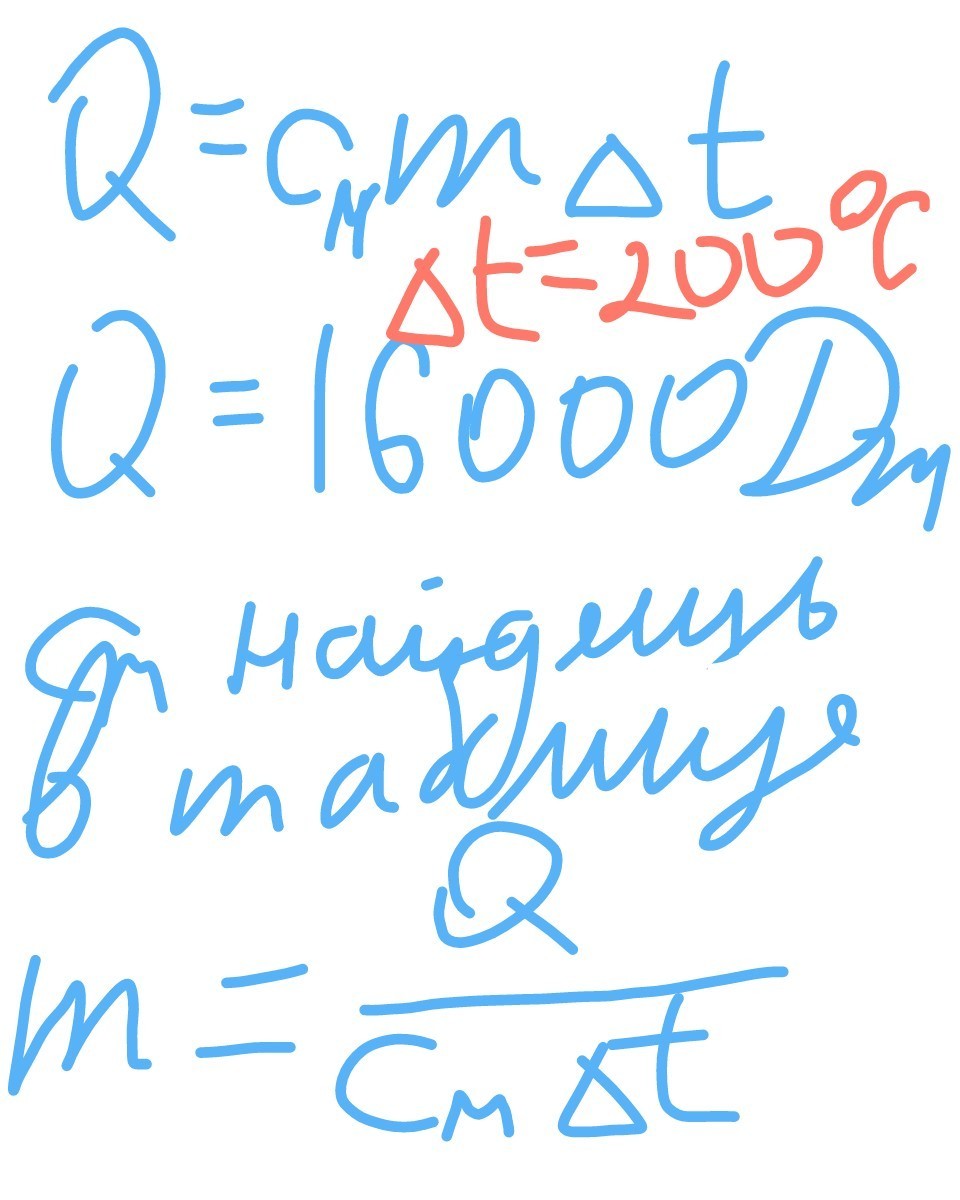 Q = cмmΔt
Δt = 200°C
Q = 16000 Дж
См найдешь
в таблице
m = Q / CмΔt